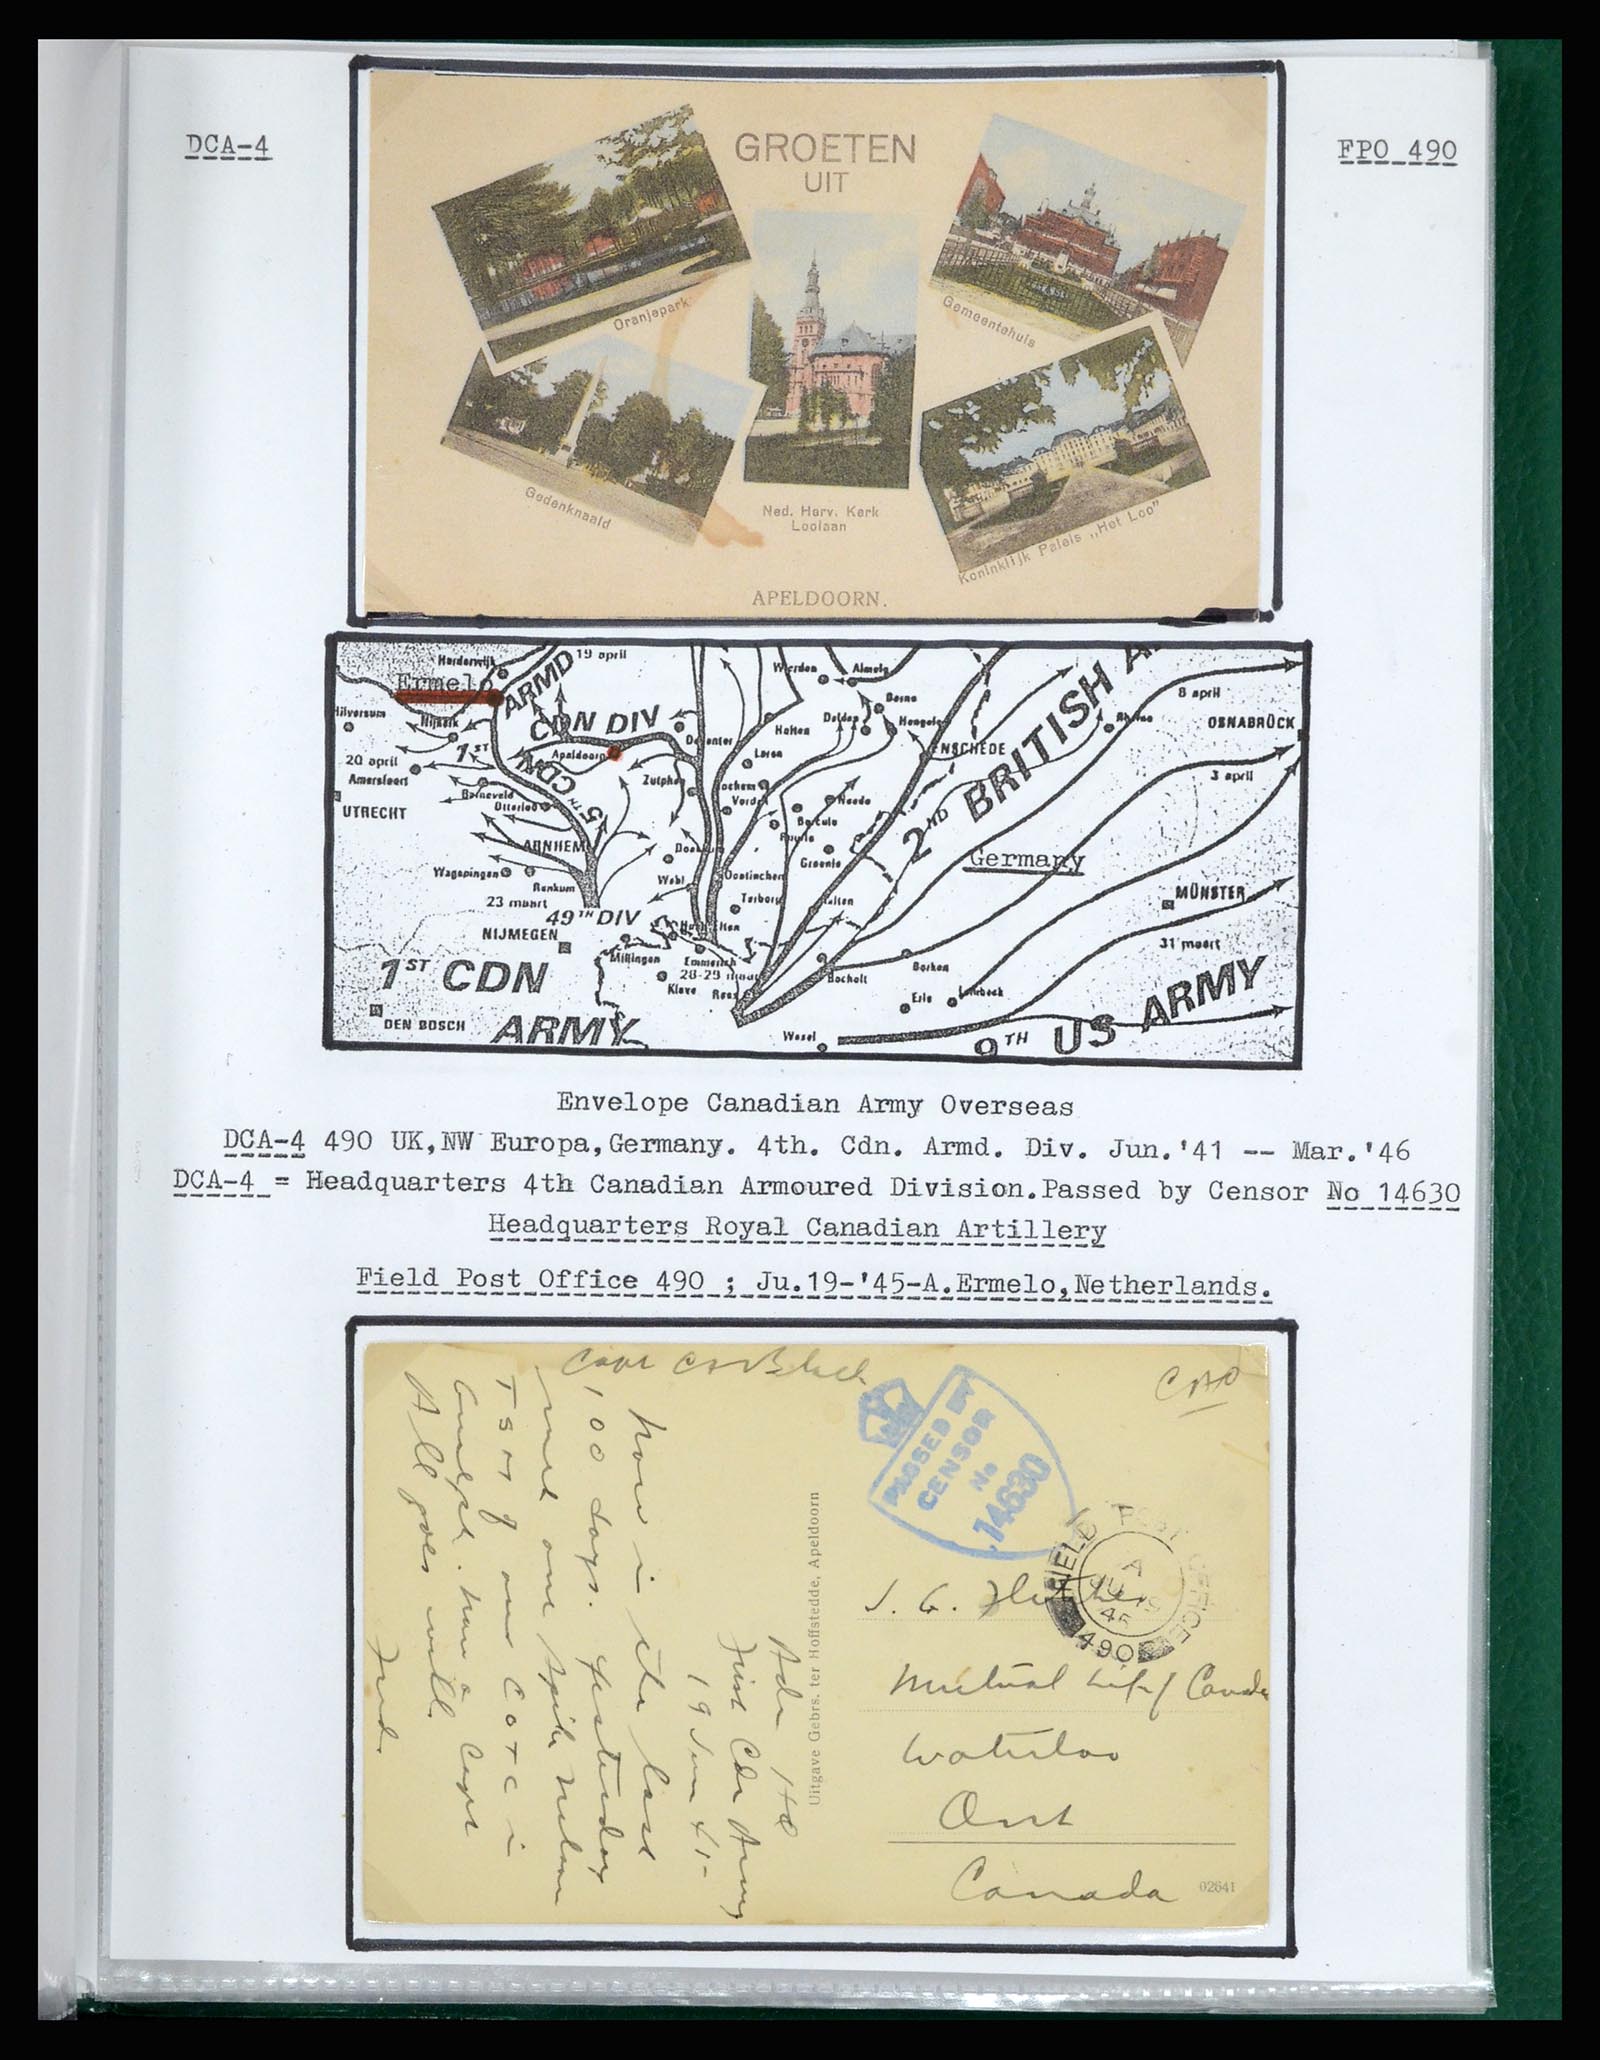 DCA-4
FPO 490
GROETEN
UIT
Oranjepark
Gemeentehuis
Gedenknaald
Ned. Herv. Kerk
Loolaan
Koninklijk Paleis „Het Loo”
APELDOORN.
Harderwijk
19 april
Ermelo
ARMD
CDN DIV
Hilversum
Nijkerk
1ST
5TH CDN
Apeldoorn
20 april
Amersfoort
Barneveld
Otterloo
UTRECHT
ARNHEM
Wageningen
Renkum
23 maart
49TH DIV
NIJMEGEN
1ST CDN
ARMY
DEN BOSCH
Wierden
Almelo
Borne
Delden
Hengelo
Holten
Deventer
Loren
ENSCHEDE
Zutphen
Lochem
Vorden
Neede
Borculo
Ruurlo
Groenlo
Wehl
Doetinchem
Terborg
Aalten
Millingen
Emmerich
28-29 maart
Kleve
Rees
Wesel
2ND BRITISH
8 april
OSNABRÜCK
3 april
Germany
MÜNSTER
31 maart
Bocholt
Borken
Erle
9TH US ARMY
Envelope Canadian Army Overseas
DCA-4 490 UK,NW Europa,Germany. 4th. Cdn. Armd. Div. Jun.'41 -- Mar.'46
DCA-4 = Headquarters 4th Canadian Armoured Division.Passed by Censor No 14630
Headquarters Royal Canadian Artillery
Field Post Office 490 ; Ju.19-'45-A.Ermelo,Netherlands.
PASSED BY
CENSOR
No
14630
FIELD POST OFFICE
A
JU 19
45
490
J. G.
Mutual Life of Canada
Waterloo
Ont
Canada
02641
Uitgave Gebrs. ter Hoffstedde, Apeldoorn
Adm HQ
First Cdn Army
19 Jun 45
now in the last
100 days. Yesterday
met one Spike Nelson
T S M of our COTC in
Guelph. now a Capt
All goes well.